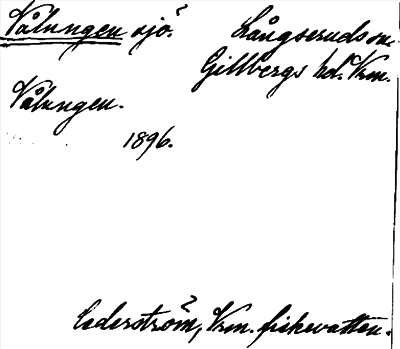 Vålungen sjö? Långseruds sn.
Gillbergs hd. Vrm.
Vålungen.
1896.
Cederström, Vrm. fiskevatten.